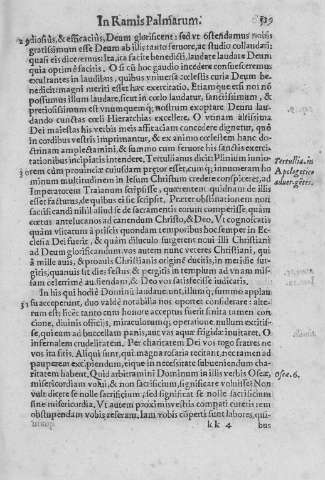 In Ramis Palmarum. 519
29 diosius, & efficacius, Deum glorificent: sed vt ostendamus nobis
gratissimum esse Deum ab illis tanto feruore, ac studio collaudari;
quasi eis diceremus: Ita, ita facite benedicti, laudate laudate Deum;
quia optimè facitis. O si cù hoc gaudio incedere consuesceremus
exultantes in laudibus, quibus vniuersa cœlestis curia Deum be
nedicit: magni meriti esset hæc exercitatio. Etiamque essi nos nō
possumus illum laudare, sicut in cœlo laudatur, sanctissimum, &
pretiosissimum est vnumquemq; nostrum exoptare Deum lau
dando cunctas cœli Hierarchias excellere. O vtinam altissima
Dei maiestas his verbis meis efficaciam concedere dignetur, quò
in cordibus vestris imprimantur, & ex animo cœlestem hanc do
ctrinam amplectamini, & summo cum feruore his sanctis exerci
tationibus incipiatis intendere. Tertullianus dicit: Plinium iunio
30 rem cùm prouinciæ cuiusdam prætor esset, cum q; innumeram ho
minum multitudinem in Iesum Christum credere conspiceret, ad
Imperatorem Traianum scripsisse, quærentem quidnam de illis
esset facturus, de quibus ei sic scripsit. Præter obstinationem non
sacrificandi nihil aliud se de sacramentis eorum comperisse, quàm
cœtus antelucanos ad canendum Christo, & Deo, Vt cognoscatis
quàm vsitatum à priscis quondam temporibus hoc semper in Ec
clesia Dei fuerit, & quàm diluculo surgerent noui illi Christiani
ad Deum glorificandum. vos autem nunc veteres Christiani, qui
à mille auis, & proauis Christianis originē ducitis, in meridie sur-
gitis, quamuis sit dies festus, & pergitis in templum ad vnam mis-
sam celerrimè audiendam, & Deo vos satisfecisse iudicatis.
In his qui hostiè Dominū laudauerunt, illumq; summo applau
31 su acceperunt, duo valdè notabilia nos oportet considerare: alte-
rum est: licet tanto cum honore acceptus fuerit finita tamen con
cione, diuinis officijs, miraculorumq; operatione nullum extitis-
se, qui eum ad buccellam panis, aut vas aquæ frigidæ inuitaret. O
infernalem crudelitatem. Per charitatem Dei vos rogo fratres ne
vos ita sitis. Aliqui sunt, qui magna rosaria recitant, nec tamen ad
pauperem excipiendum, eique in necessitate subueniendum cha-
ritatem habent. Quid arbitramini Dominum in illis verbis Oseæ,
misericordiam volui, & non sacrificium, significate voluisse? Non
vult dicere se nolle sacrificium, sed significat se nolle sacrificium
sine misericordia, Vt autem proximi vestris compati cuteris rem
obstupendam vobis referam. Iam vobis cōpertū sunt labores, qui-
Tertullia. in
Apologetico
aduer. gētes.
Osee. 6.
kk 4 bus